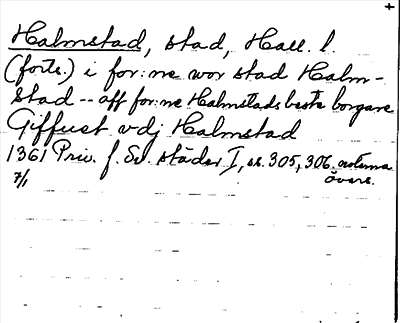 Halmstad, stad, Hall. l.
(forts.) i for:ne wor stad Halm-
stad -- aff for:ne Halmstads beste borgare
Giffuet vdj Halmstad
1361 Priv. f. Sv. städer I, s. 305, 306.
7/1 övers.